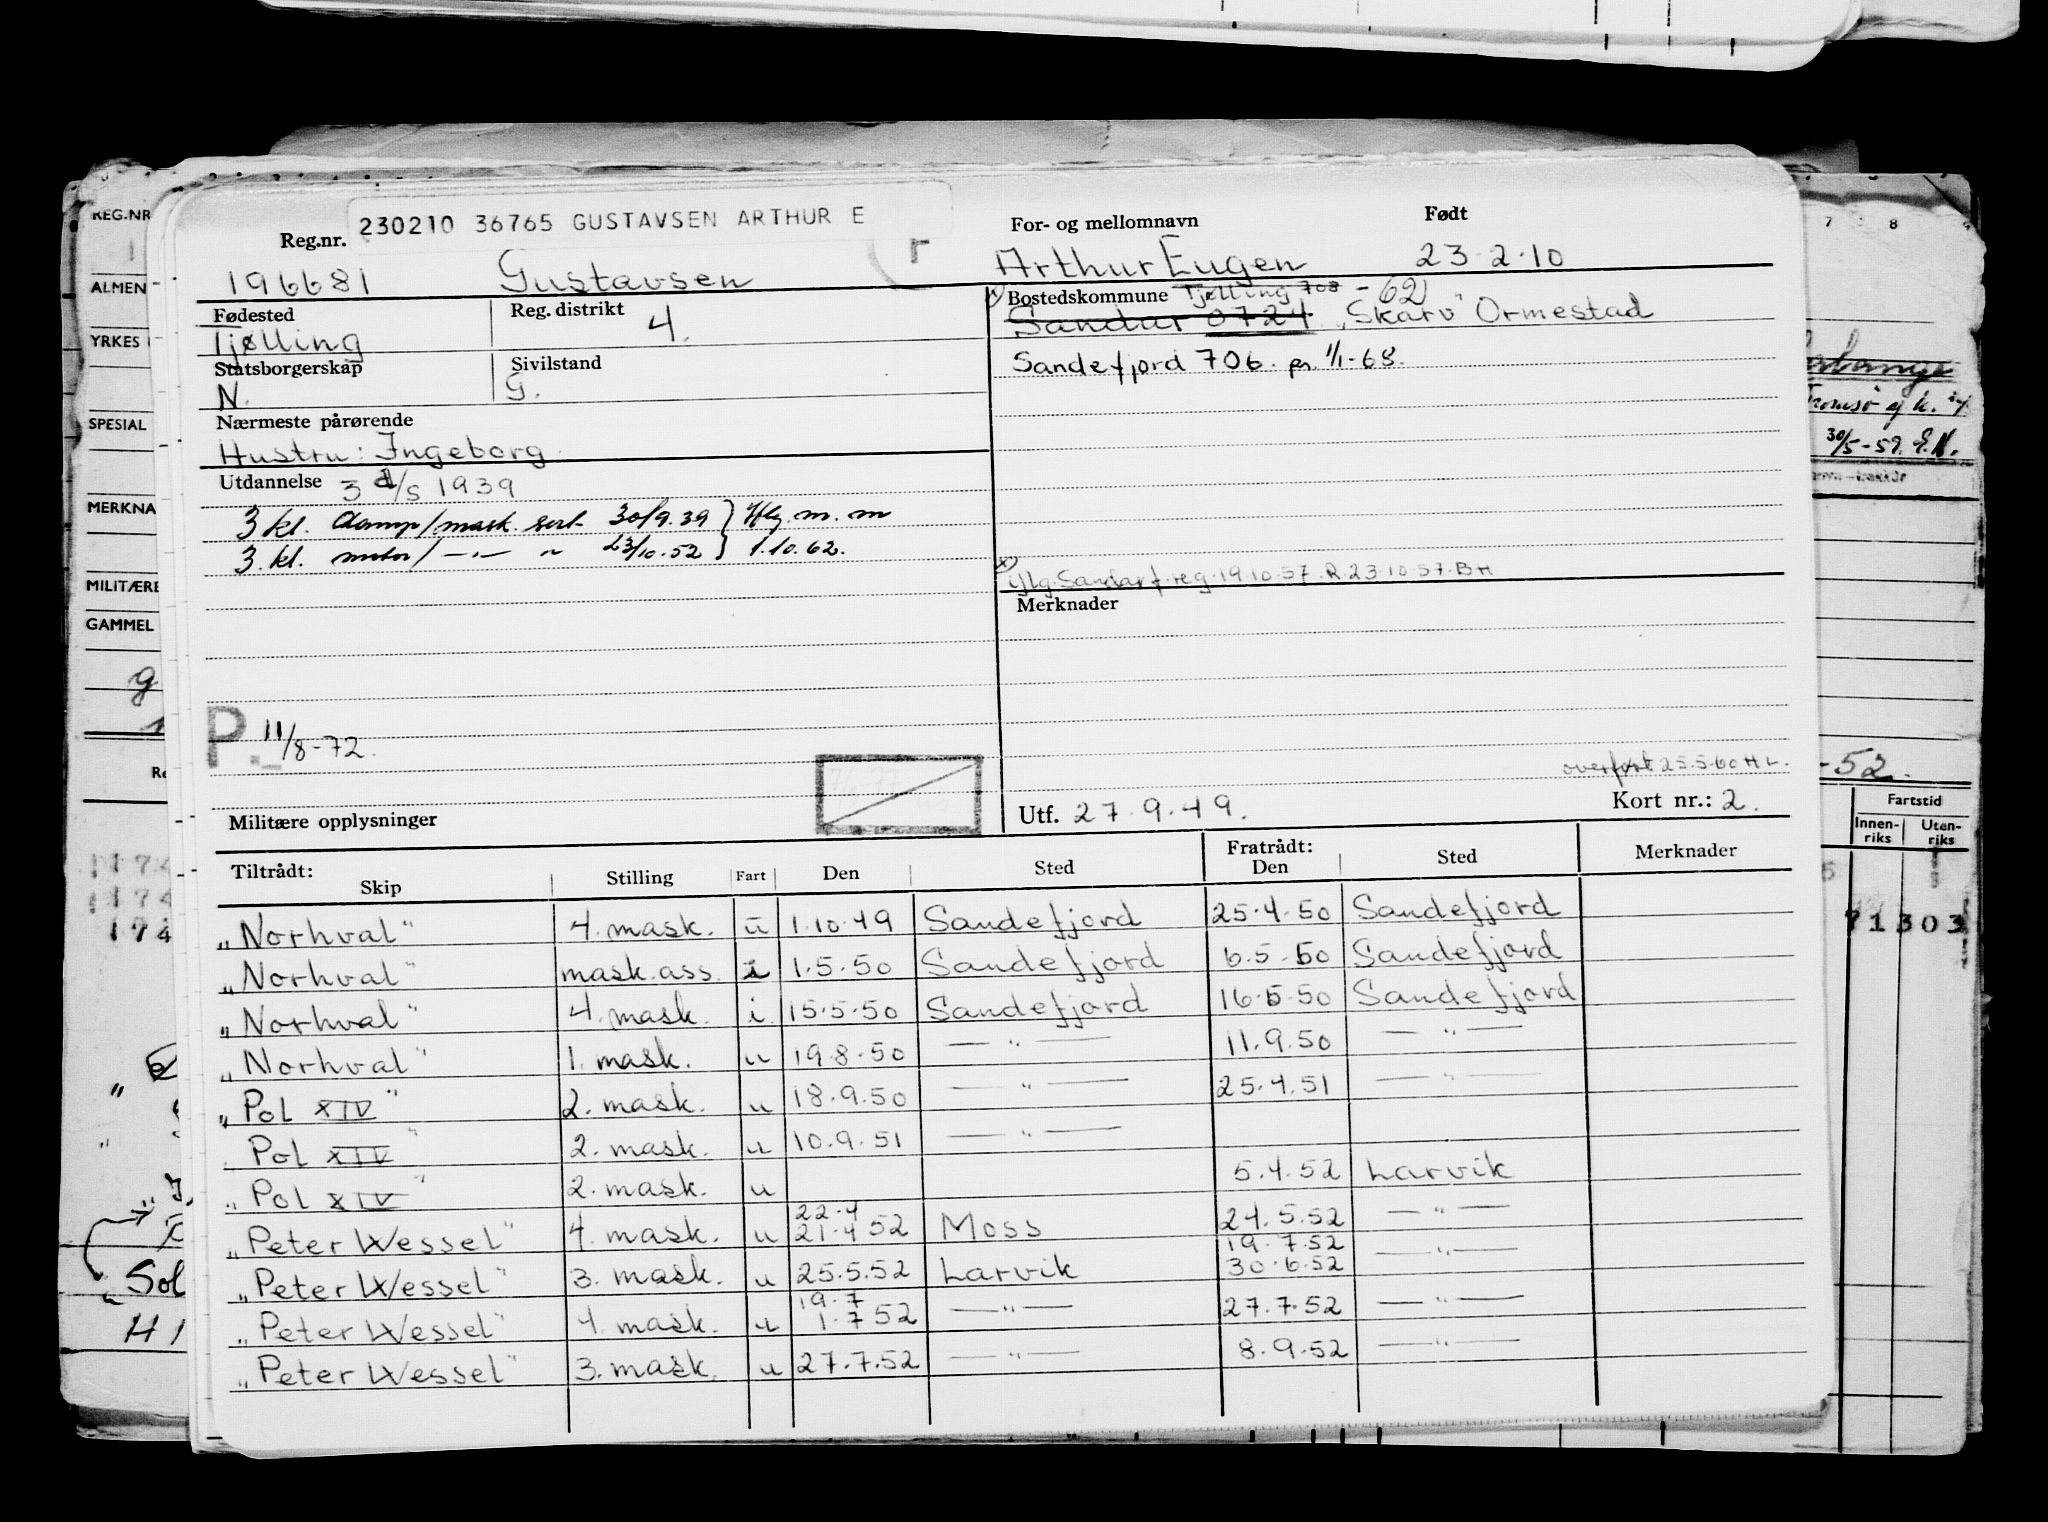 230210 36765 GUSTAVSEN ARTHUR E
Reg.nr. For- og mellomnavn Født
196681 Gustavsen Arthur Eugen 23.2.10
Fødested Reg. distrikt Bostedskommune Tjølling 708 - 62
Tjølling 4. Sandar 0724 "Skarv" Ormestad
Statsborgerskap Sivilstand Sandefjord 706. pr. 1/1-68.
N. G.
Nærmeste pårørende
Hustru: Ingeborg
Utdannelse 3 d/s 1939
3 kl. damp/mask. sert. 30/9.39 } Iflg. m. m
3. kl. motor/ —"— " 23/10.52 } 1.10.62.
x) iflg. Sandar f.reg. 19.10.57. R. 23.10.57. BH
Merknader
P. 11/8-72.
overført 25.5.60 H L.
Militære opplysninger Utf. 27.9.49. Kort nr.: 2.
Tiltrådt: Fratrådt:
Skip Stilling Fart Den Sted Den Sted Merknader
"Norhval" 4. mask. u 1.10.49 Sandefjord 25.4.50 Sandefjord
"Norhval" mask.ass. i 1.5.50 Sandefjord 6.5.50 Sandefjord
"Norhval" 4. mask. i 15.5.50 Sandefjord 16.5.50 Sandefjord
"Norhval" 1. mask. u 19.8.50 — " — 11.9.50 — " —
"Pol XIV" 2. mask. u 18.9.50 — " — 25.4.51 — " —
"Pol XIV" 2. mask. u 10.9.51 — " —
"Pol XIV" 2. mask. u 5.4.52 Larvik
22.4
"Peter Wessel" 4. mask. u 21.4 52 Moss 24.5.52 — " —
19.7.52
"Peter Wessel" 3. mask. u 25.5.52 Larvik 30.6.52 — " —
19.7
"Peter Wessel" 4. mask. u 1.7 52 — " — 27.7.52 — " —
"Peter Wessel" 3. mask. u 27.7.52 — " — 8.9.52 — " —
REG.NR
ALMEN
YRKES
SPESIAL
MERKNA
MILITÆRE
GAMMEL
g
174
174
174
Sol
H I
7 8
Tromsø
30/5-52. E.N.
-52.
Fartstid
Innen-riks Uten-riks
71303